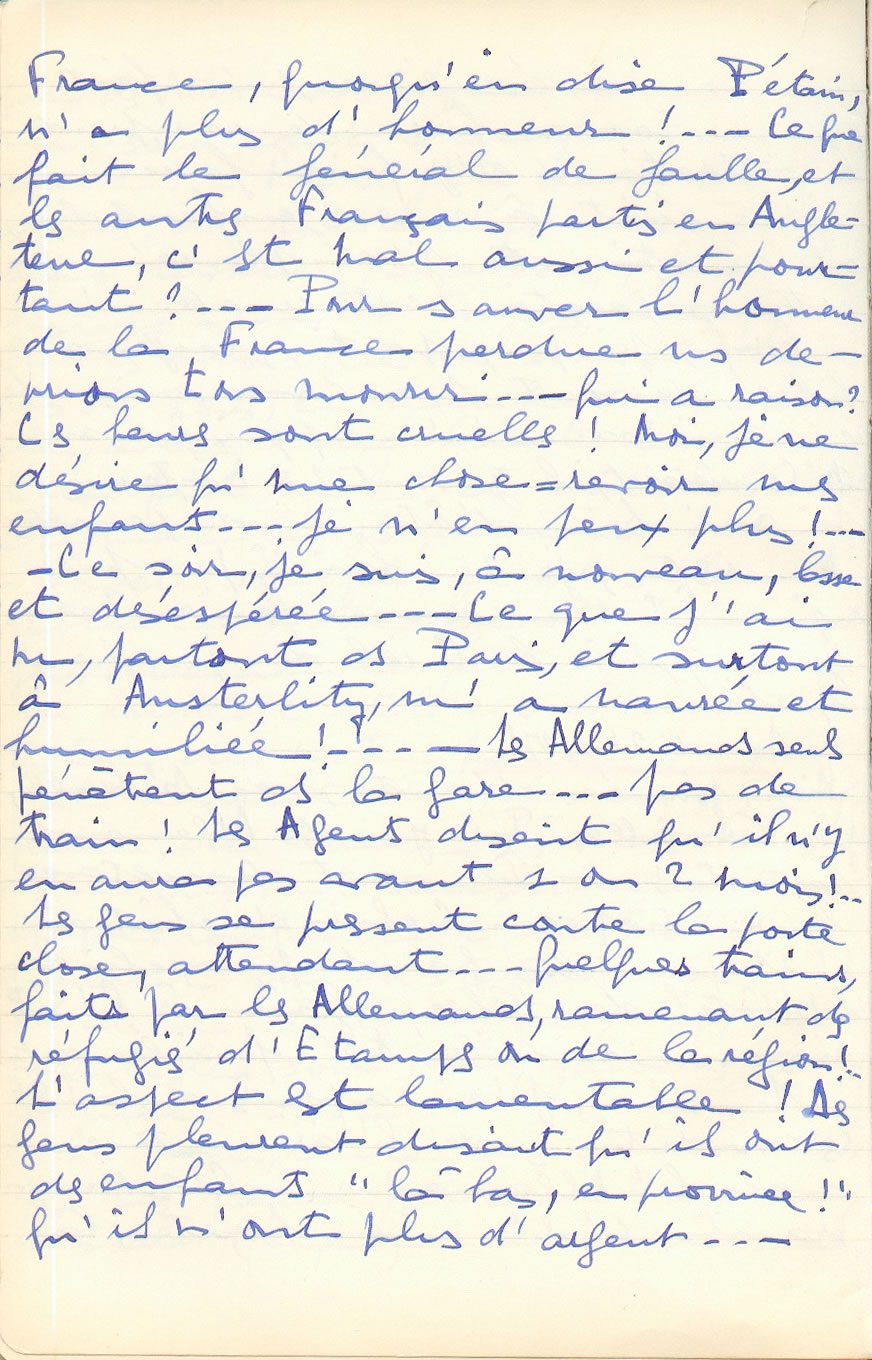 France, quoiqu'en dise Pétain,
n'a plus d'honneur !--- Ce que
fait le général de Gaulle, et
les autres Français partis en Angle-
terre, c'est mal aussi et pour=
tant ?--- Pour sauver l'honneur
de la France perdue ns de-
vrions tous mourir--- qui a raison?
Les heures sont cruelles ! Moi, je ne
désire qu'une chose = revoir mes
enfants--- je n'en peux plus !---
-Ce soir, je suis, à nouveau, lasse
et désespérée --- Ce que j'ai
vu, partout ds Paris, et surtout
à Austerlitz, m'a navrée et
humiliée !---- Les Allemands seuls
pénètrent ds la gare--- pas de
train ! Les Agents disent qu'il n'y
en aura pas avant 1 ou 2 mois!..
Les gens se pressent contre la porte
close, attendant--- quelques trains,
faits par les Allemands, ramenant des
réfugiés d'Etampes ou de la région!..
L'aspect est lamentable ! Des
gens pleurent disant qu'ils ont
des enfants "là bas, en province !"
qu'ils n'ont plus d'argent ---